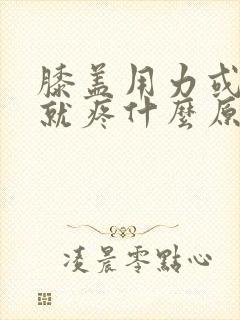 膝盖用力或
就疼什麼原
凌晨零點心